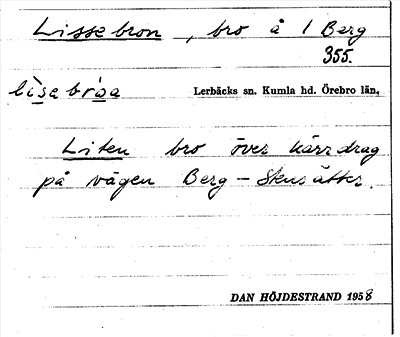 Lissebron, bro å 1 Berg
355.
lìsebròa Lerbäcks sn. Kumla hd. Örebro län.
Liten bro över kärrdrag
på vägen Berg – Stensätter.
DAN HÖJDESTRAND 1958